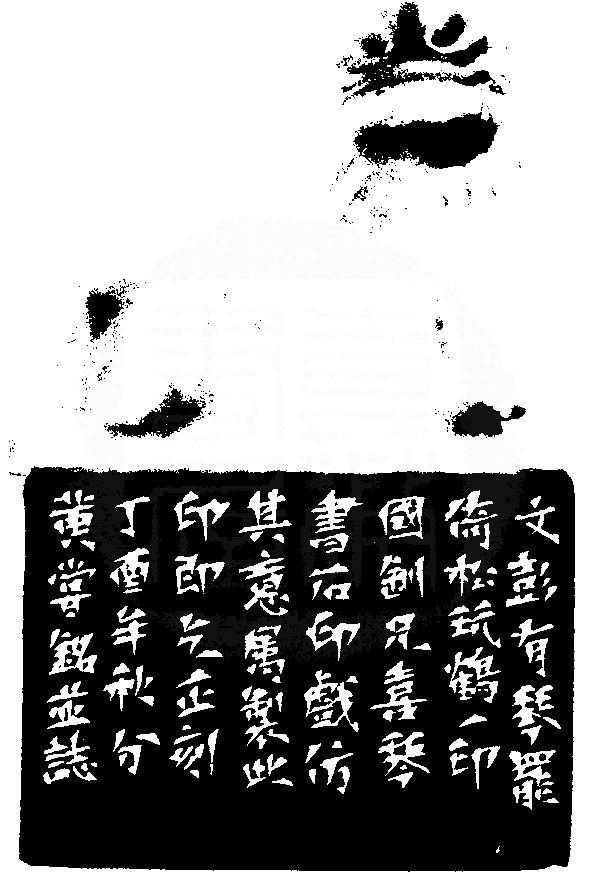 文彭有琴罷
倚松玩鶴〻印
國釗兄喜琴
書治印戲仿
其意屬製此
印即乞正刻
丁酉年秋分
黄嘗銘並誌